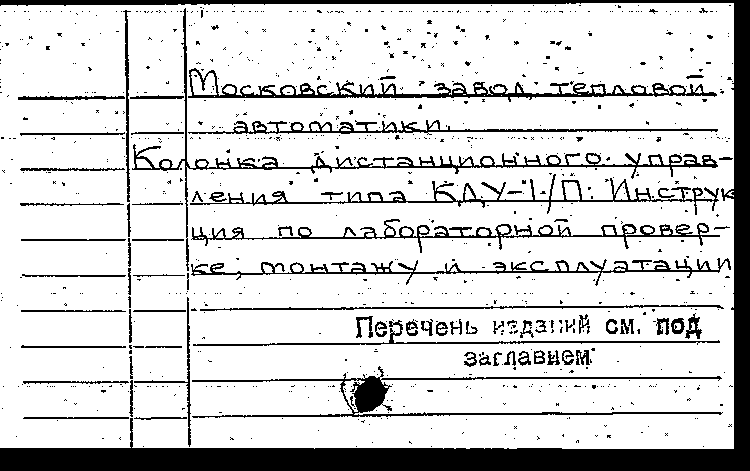 Московский завод тепловой
автоматики.
Колонка дистанционного управ-
ления типа КДУ-1/П: Инструк
ция по лабораторной провер-
ке, монтажу и эксплуатации
Перечень изданий см. под
заглавием